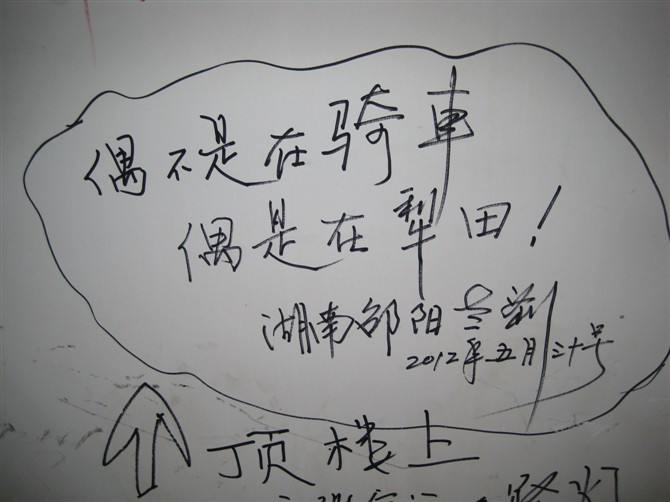 偶不是在骑車
偶是在犁田！
湖南邵阳
2012年五月三十号
顶楼上
路灯